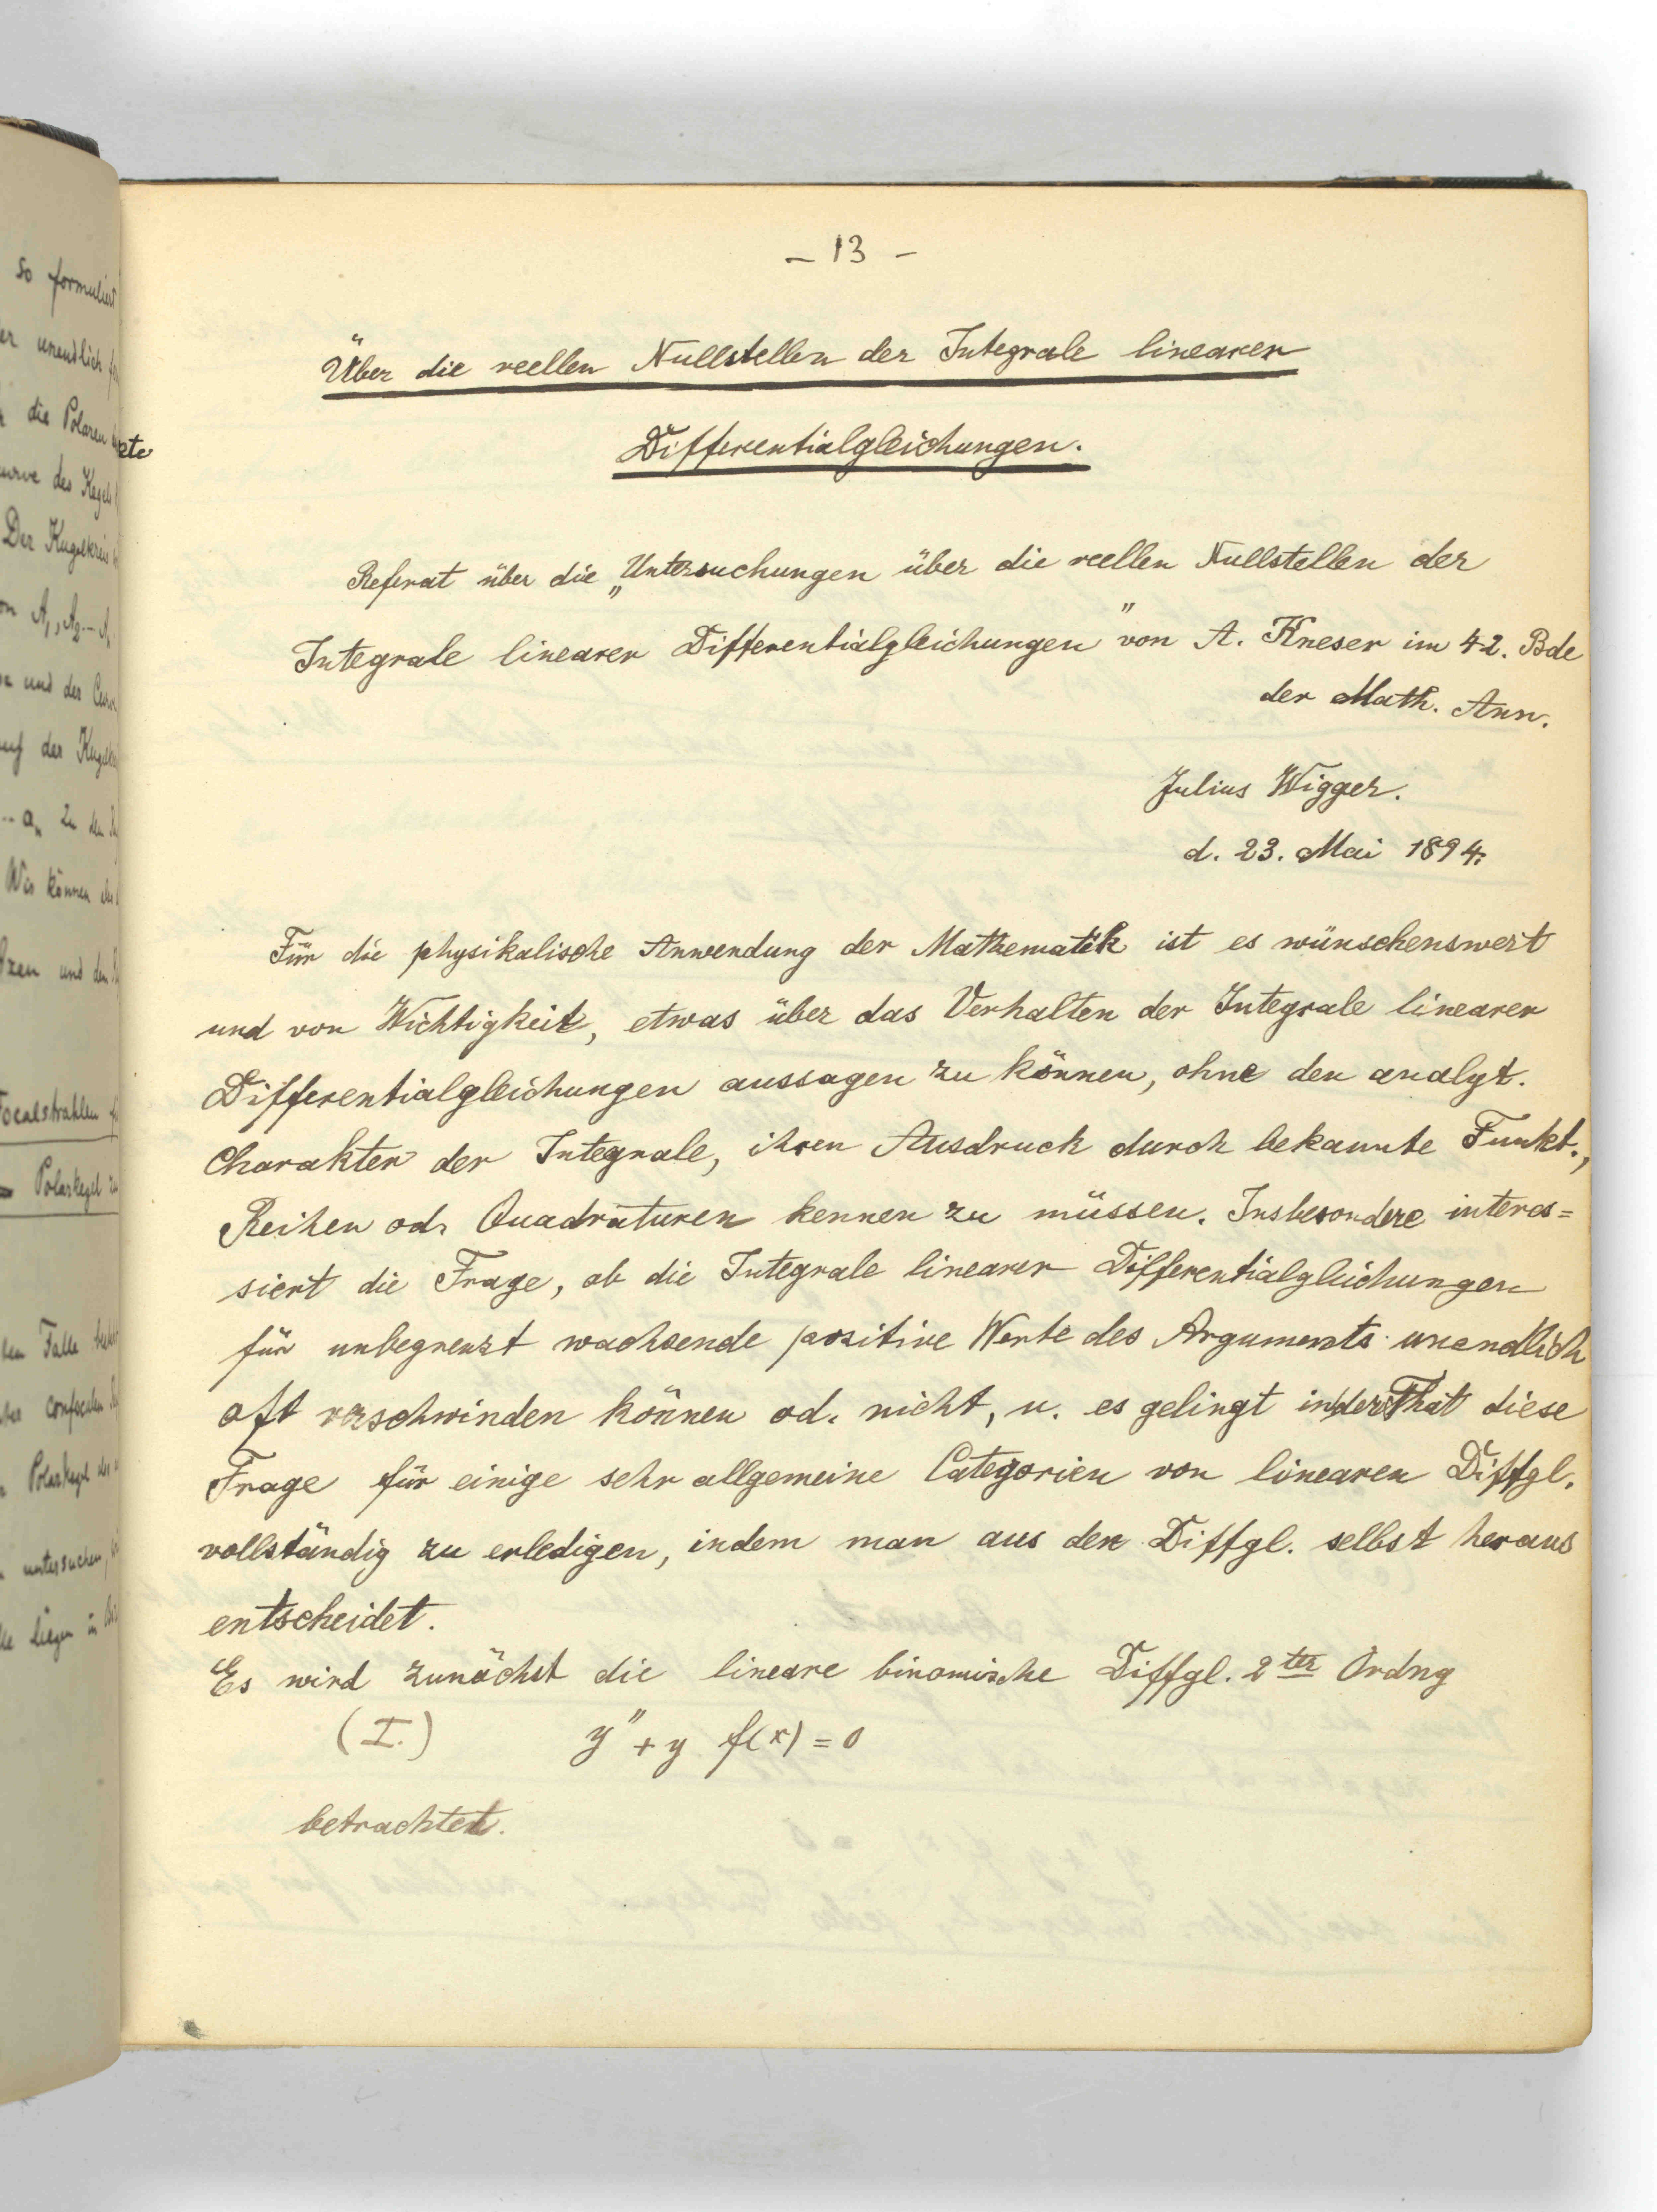 – 13 –
Über die reellen Nullstellen der Integrale linearer
Differentialgleichungen.
Referat über die „Untersuchungen über die reellen Nullstellen der
Integrale linearer Differentialgleichungen" von A. Kneser im 42. Bde
der Math. Ann.
Julius Wigger.
d. 23. Mai 1894.
Für die physikalische Anwendung der Mathematik ist es wünschenswert
und von Wichtigkeit, etwas über das Verhalten der Integrale linearer
Differentialgleichungen aussagen zu können, ohne den analyt.
Charakter der Integrale, ihren Ausdruck durch bekannte Funkt.,
Reihen od. Quadraturen kennen zu müssen. Insbesondere interes=
siert die Frage, ob die Integrale linearer Differentialgleichungen
für unbegrenzt wachsende positive Werte des Arguments unendlich
oft verschwinden können od. nicht, u. es gelingt in der That diese
Frage für einige sehr allgemeine Categorien von linearen Diffgl.
vollständig zu erledigen, indem man aus der Diffgl. selbst heraus
entscheidet.
Es wird zunächst die lineare binomische Diffgl. 2ter Ordng
(I.) y'' + y f(x) = 0
betrachtet.
so formuliert
unendlich
die Polaren
des Kegels
Der Kugelkreis
und der
auf der
Wir können
und den
Focalstrahlen
Polarkegel
Falle
confocalen
Polarkegel
untersuchen,
liegen in